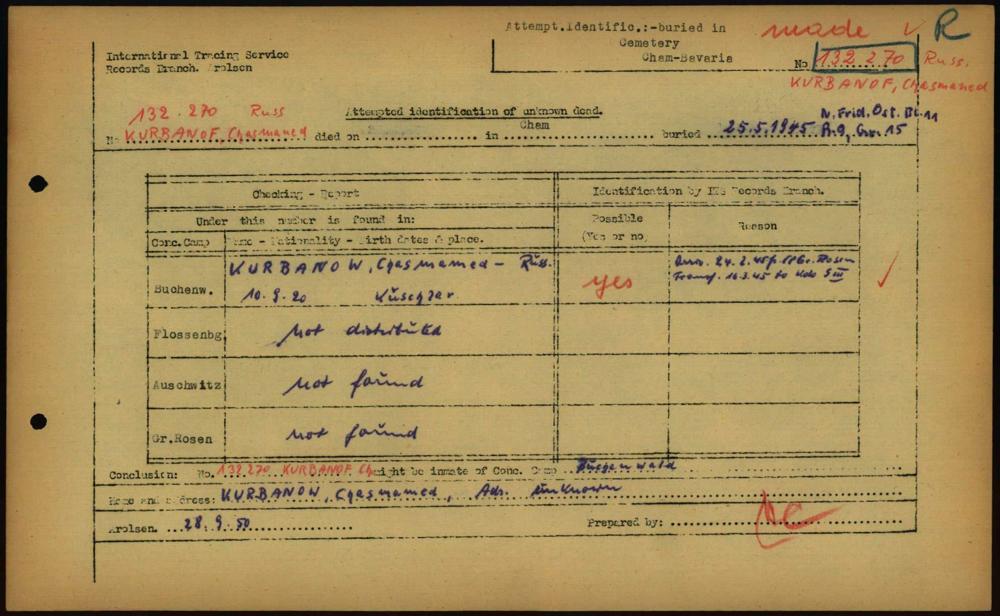 Attempt.Identific.:-buried in
made
R
Cemetery
Cham-Bavaria
No 132 270 Russ.
KURBANOF, Chasmamed
International Tracing Service
Records Branch. Arolsen
132.270 Russ
Attempted identification of unknown dead.
N. Frid. Ost. Bl. 11
No KURBANOF, Chasmamed died on in Cham buried 25.5.1945 R.9, Gr. 15
Checking - Report
Identification by ITS Records Branch.
Under this number is found in:
Possible
(Yes or no)
Reason
Conc.Camp
Name - Nationality - Birth dates & place.
KURBANOW, Chasmamed - Russ.
Buchenw.
10.9.20
yes
24.2.45 f. Gr. Rosen
Transf. 16.3.45 to Kdo S III
Flossenbg
not distributed
Auschwitz
not found
Gr.Rosen
not found
Conclusion: No. 132270 KURBANOF Ch might be inmate of Conc. Camp Buchenwald
Name and address: KURBANOW, Chasmamed, Adr. unknown
Arolsen. 28.9.50
Prepared by: